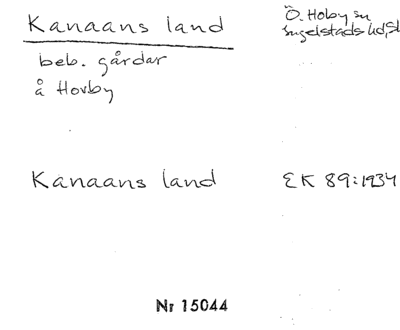 Kanaans land
Ö. Hoby sn
Ingelstads hd, Sk
beb. gårdar
å Hovby
Kanaans land
EK 89:1934
Nr 15044